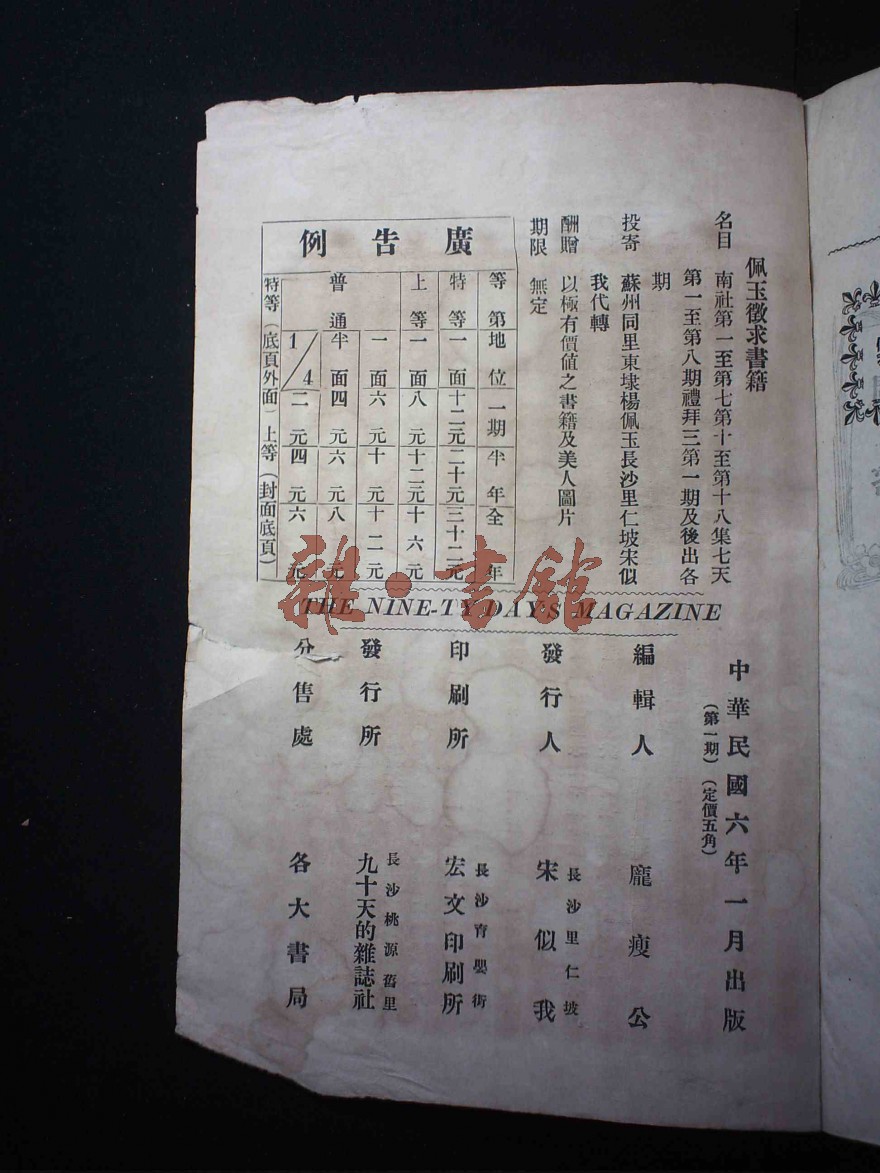 佩玉徵求書籍
名目　南社第一至第七第十至第十八集七天
第一至第八期禮拜三第一期及後出各
期
投寄　蘇州同里東埭楊佩玉長沙里仁坡宋似
我代轉
酬贈　以極有價值之書籍及美人圖片
期限　無定
廣告例
等第　地位　一期　半年　全年
特等　一面　十二元　二十元　三十二元
上等　一面　八元　十二元　十六元
普通　一面　六元　十元　十二元
半面　四元　六元　八元
1/4　二元　四元　六元
特等（底頁外面）上等（封面底頁）
THE NINE-TY DAYS MAGAZINE
中華民國六年一月出版
（第一期）（定價五角）
編輯人　龐瘦公
發行人　長沙里仁坡
宋似我
印刷所　長沙育嬰街
宏文印刷所
發行所　長沙桃源舊里
九十天的雜誌社
分售處　各大書局
雜·書館